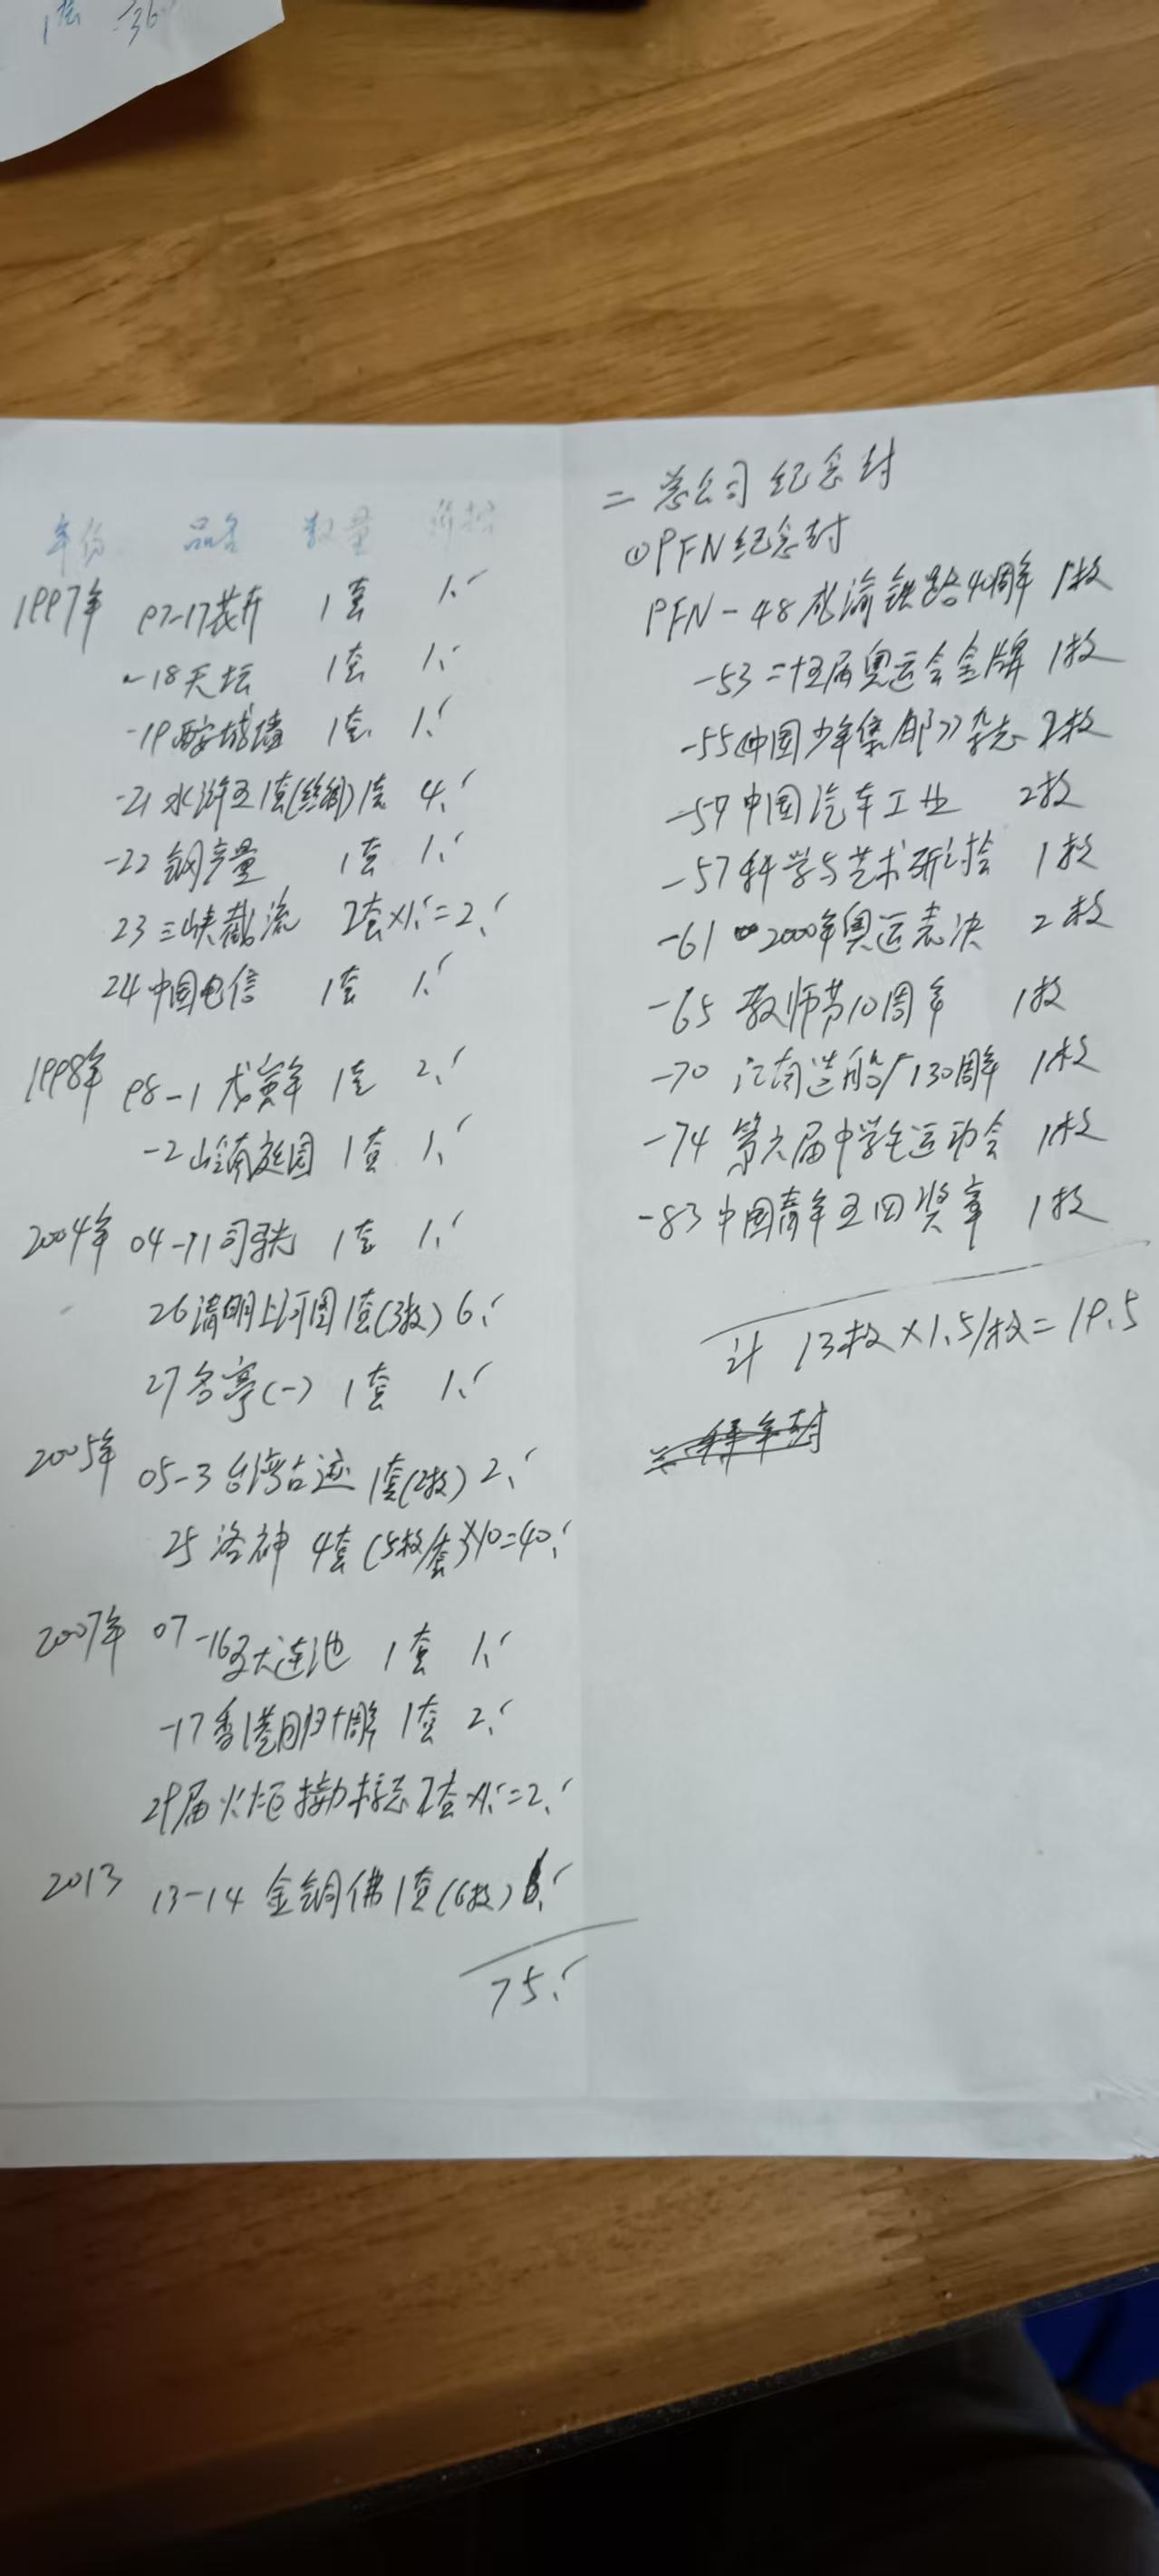 1套 36
年份 品名 数量 价格
1997年 97-17花卉 1套 1.-
-18天坛 1套 1.-
-19西安城墙 1套 1.-
-21水浒五1套(丝绸)1套 4.-
-22钢产量 1套 1.-
23三峡截流 2套×1.-=2.-
24中国电信 1套 1.-
1998年 98-1戊寅年 1套 2.-
-2岭南庭园 1套 1.-
2004年 04-11司马光 1套 1.-
26清明上河图1套(3枚) 6.-
27名亭(一) 1套 1.-
2005年 05-3台湾古迹 1套(2枚) 2.-
25洛神 4套(5枚/套)×10=40.-
2007年 07-16五大连池 1套 1.-
-17香港回归十周年 1套 2.-
29届火炬接力标志2套×1.-=2.-
2013 13-14金铜佛1套(6枚) 6.-
75.-
二 总公司纪念封
①PFN纪念封
PFN-48成渝铁路40周年 1枚
-53二十五届奥运会金牌 1枚
-55《中国少年集邮》杂志 2枚
-59中国汽车工业 2枚
-57科学与艺术研讨会 1枚
-61 2000年奥运表决 2枚
-65教师节10周年 1枚
-70江南造船厂130周年 1枚
-74第六届中学生运动会 1枚
-83中国青年五四奖章 1枚
计 13枚×1.5/枚=19.5